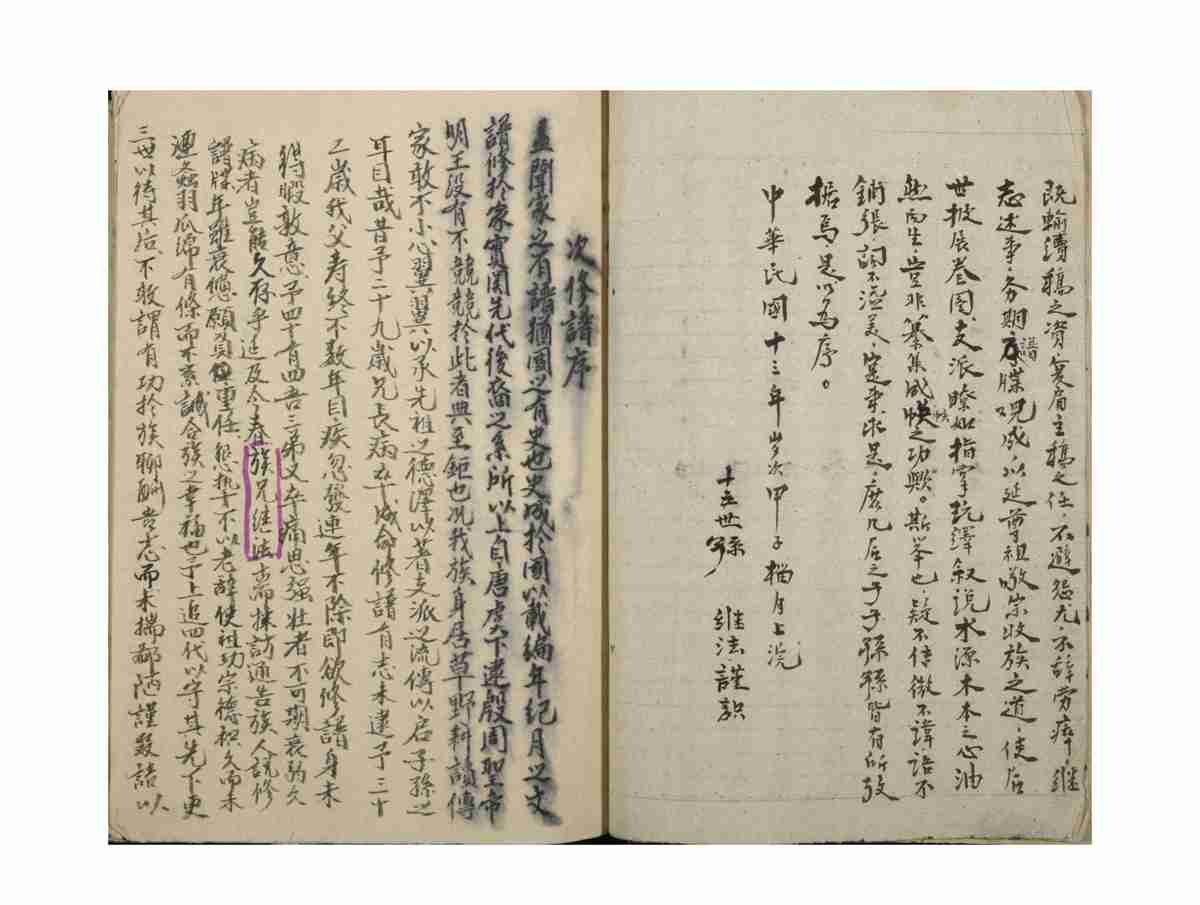 既輸續稿之資复肩主稿之任不避怨尤不辞劳瘁继
志述事务期譜牒覌成以延尊祖敬宗收族之道使后
世披展卷图支派瞭如指掌玩绎叙说水源木本之心油
然而生豈非纂集成帙之功歟。斯举也疑不信徵不諱語不
铺张詞不溢美寔事求是庶几后之子子孫孫皆有所攷
据焉是以為序。
中華民國十三年岁次甲子 月上浣
十五世孫 继法謹識
次修譜序
盖聞家之有譜猶國之有史也史成於國以載編年紀月之文
譜修於家實関先代後裔之系所以上自唐虞下逮殷周聖帝
明王沒有不競競於此者典至鉅也况我族身居草野耕讀傳
家敢不小心翼翼以承先祖之德澤以著支派之流傳以启子孫之
耳目哉昔予二十九歲兄長病 命修譜有志未逮予三十
二歲我父寿終不数年目疾忽發連年不除即欲修譜身未
得暇敦意予四十有四吾三弟又卒痛思强壮者不可期衰弱久
病者豈能久存乎延及今春族兄继法 採訪通告族人説修
譜牒年雖衰 願負重任怨 不以老辞使祖功宗德积久而未
螽羽瓜绵 月條而不紊誠合族之幸福也予上追四代以守其先下更
三世以待其后不敢謂有功於族聊酬昔志而未揣鄙陋謹綴語以